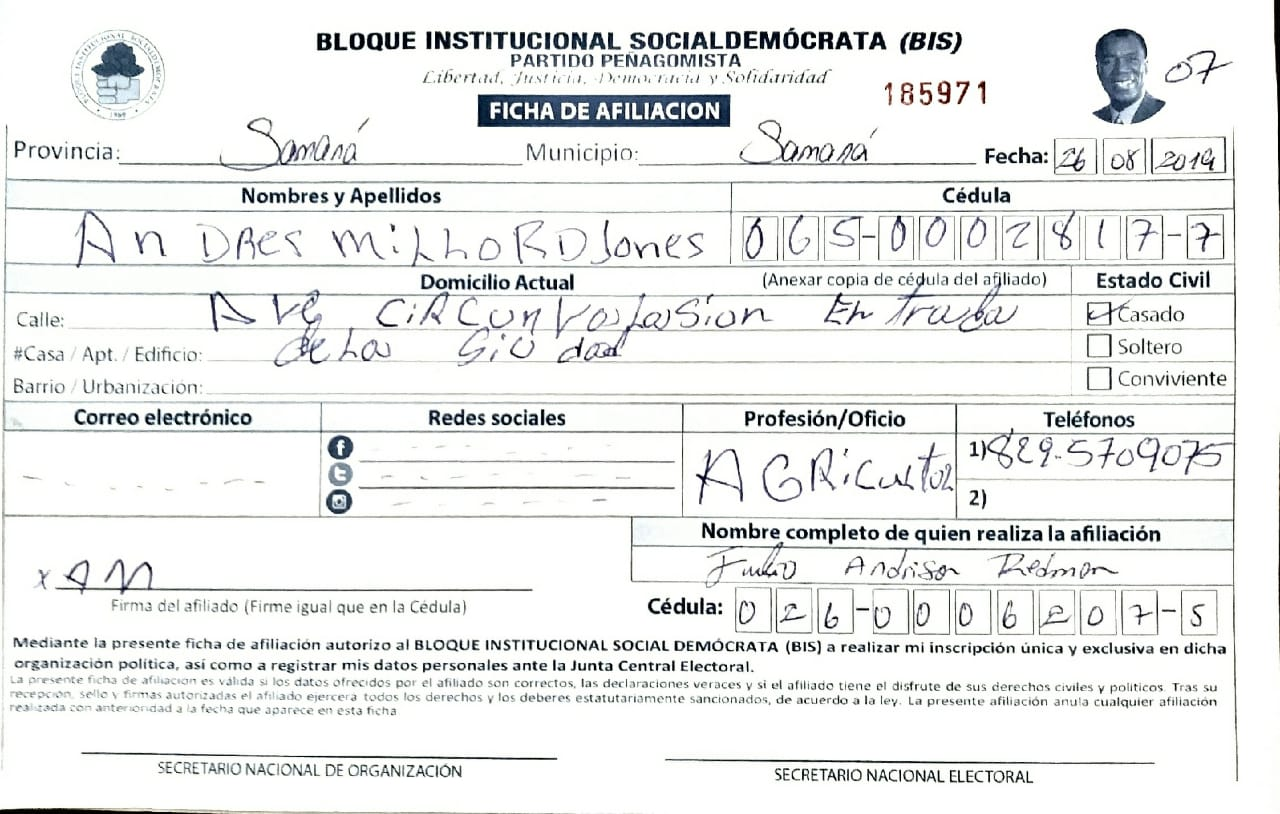 BLOQUE INSTITUCIONAL SOCIALDEMÓCRATA (BIS)
PARTIDO PEÑAGOMISTA
Libertad, Justicia, Democracia y Solidaridad
185971
07
FICHA DE AFILIACION
Provincia: Samaná Municipio: Samaná Fecha: 26 08 2019
Nombres y Apellidos Cédula
AnDRes MiLLoRD Jones 065-0002817-7
Domicilio Actual (Anexar copia de cédula del afiliado) Estado Civil
Calle: Ave CiRCunvalasion Entrada Casado
#Casa / Apt. / Edificio: de La Siudad Soltero
Barrio / Urbanización: Conviviente
Correo electrónico Redes sociales Profesión/Oficio Teléfonos
AGRicultoR 1) 829-5709075
2)
Nombre completo de quien realiza la afiliación
Julio Andrison Redmon
x AM
Firma del afiliado (Firme igual que en la Cédula)
Cédula: 026-0006207-5
Mediante la presente ficha de afiliación autorizo al BLOQUE INSTITUCIONAL SOCIAL DEMÓCRATA (BIS) a realizar mi inscripción única y exclusiva en dicha
organización política, así como a registrar mis datos personales ante la Junta Central Electoral.
La presente ficha de afiliación es válida si los datos ofrecidos por el afiliado son correctos, las declaraciones veraces y si el afiliado tiene el disfrute de sus derechos civiles y politicos. Tras su
recepción, sello y firmas autorizadas el afiliado ejercerá todos los derechos y los deberes estatutariamente sancionados, de acuerdo a la ley. La presente afiliación anula cualquier afiliación
realizada con anterioridad a la fecha que aparece en esta ficha
SECRETARIO NACIONAL DE ORGANIZACIÓN
SECRETARIO NACIONAL ELECTORAL